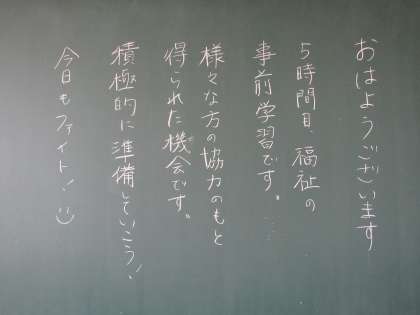 おはようございます
5時間目、福祉の
事前学習です。
様々な方の協力のもと
得られた機会です。
積極的に準備していこう!
今日もファイト!